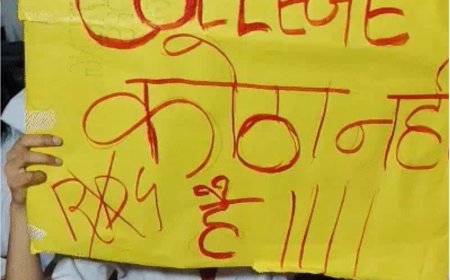 COLLEGE
कोठा नहीं
है ।।।।